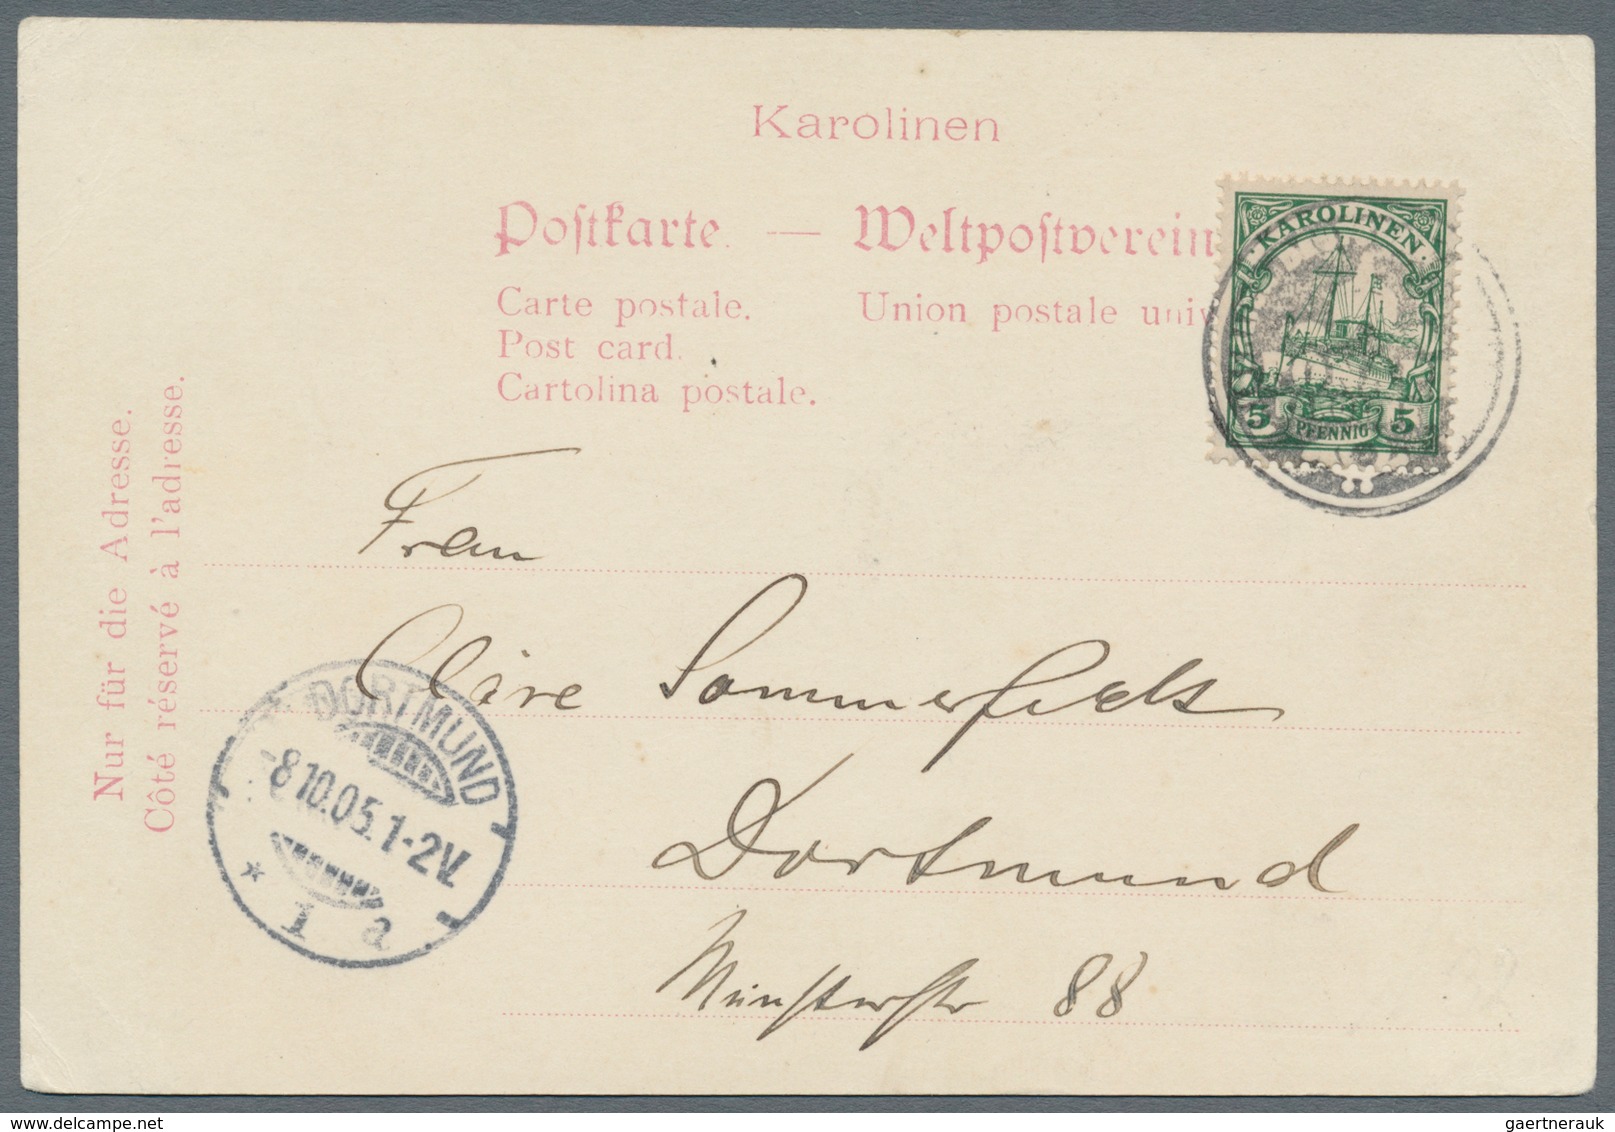 Karolinen
Postkarte. — Weltpostverein
Carte postale. Union postale univ
Post card.
Cartolina postale.
KAROLINEN
5 PFENNIG 5
Nur für die Adresse.
Côté réservé à l'adresse.
Frau
Cläre Sommerfeldt
Dortmund
Münsterstr 88
DORTMUND
-8.10.05.1-2V.
* 1 a
gaertnerauk